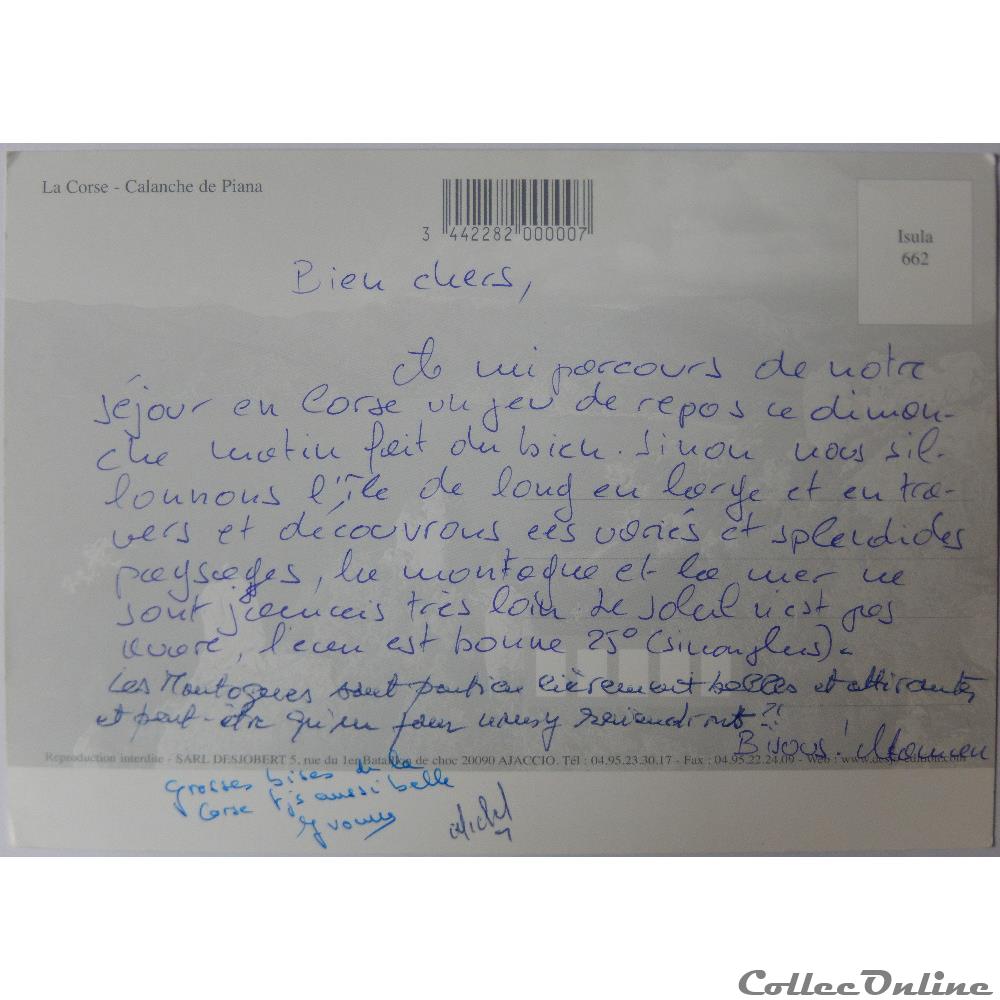 La Corse - Calanche de Piana
3 442282 000007
Isula
662
Bien chers,
A mi parcours de notre
séjour en Corse un peu de repos ce diman-
che matin fait du bien. Sinon nous sil-
lonnons l'île de long en large et en tra-
vers et découvrons ces variés et splendides
paysages, la montagne et la mer ne
sont jamais très loin. Le soleil n'est pas
avare, l'eau est bonne 25° (sinon plus).
Les Montagnes sont particulièrement belles et attirantes
et peut-être qu'un jour nous y reviendrons ?!
Bisous !
Reproduction interdite - SARL DESJOBERT 5, rue du 1er Bataillon de choc 20090 AJACCIO. Tél : 04.95.23.30.17 - Fax : 04.95.22.24.09 - Web : www.
Grosses bises de la
Corse tjs aussi belle
Yvonne
Michel
CollecOnline